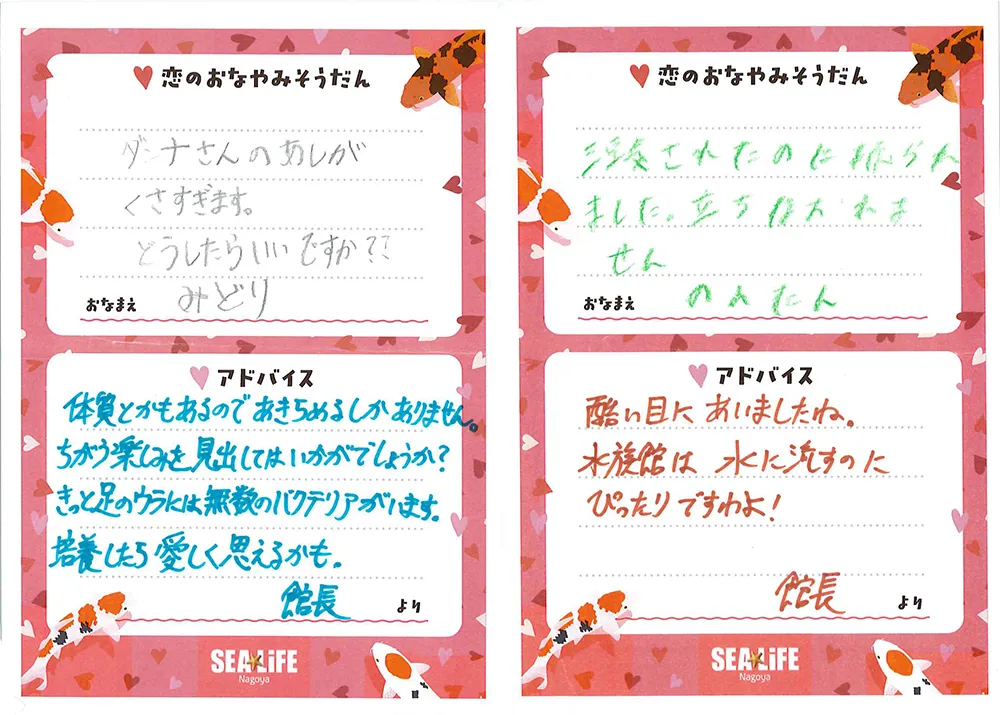 恋のおなやみそうだん
ダンナさんのあしが
くさすぎます。
どうしたらいいですか??
おなまえ みどり
アドバイス
体質とかもあるのであきらめるしかありません。
ちがう楽しみを見出してはいかがでしょうか?
きっと足のウラには無数のバクテリアがいます。
培養したら愛しく思えるかも。
館長 より
SEA LiFE
Nagoya
恋のおなやみそうだん
されたのに振られ
ました。立ち直れま
せん
おなまえ
アドバイス
酷い目にあいましたね。
水族館は水に流すのに
ぴったりですわよ!
館長 より
SEA LiFE
Nagoya